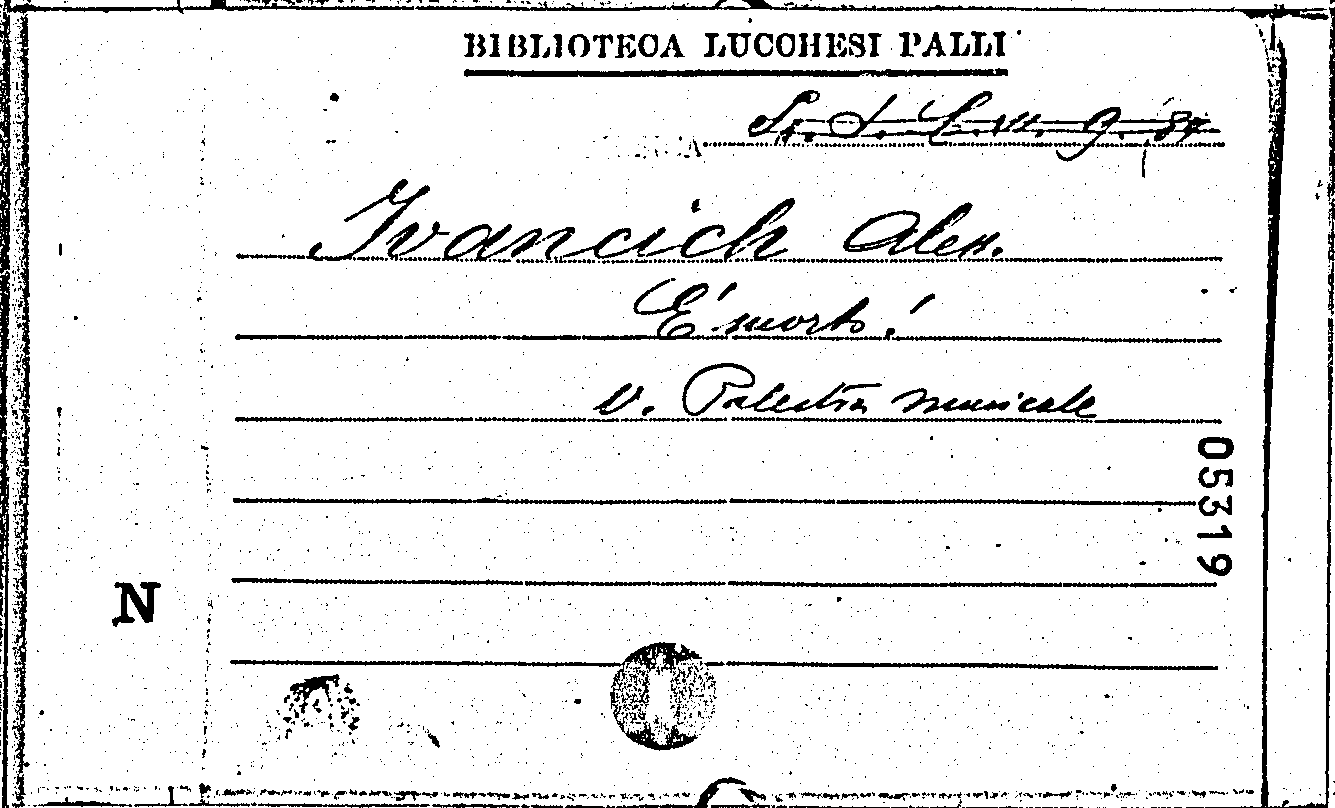 BIBLIOTECA LUCCHESI PALLI
Sc. S. L. VII. 9. 87
Ivancich Aless.
E' morto!
V. Palestra musicale
05319
N